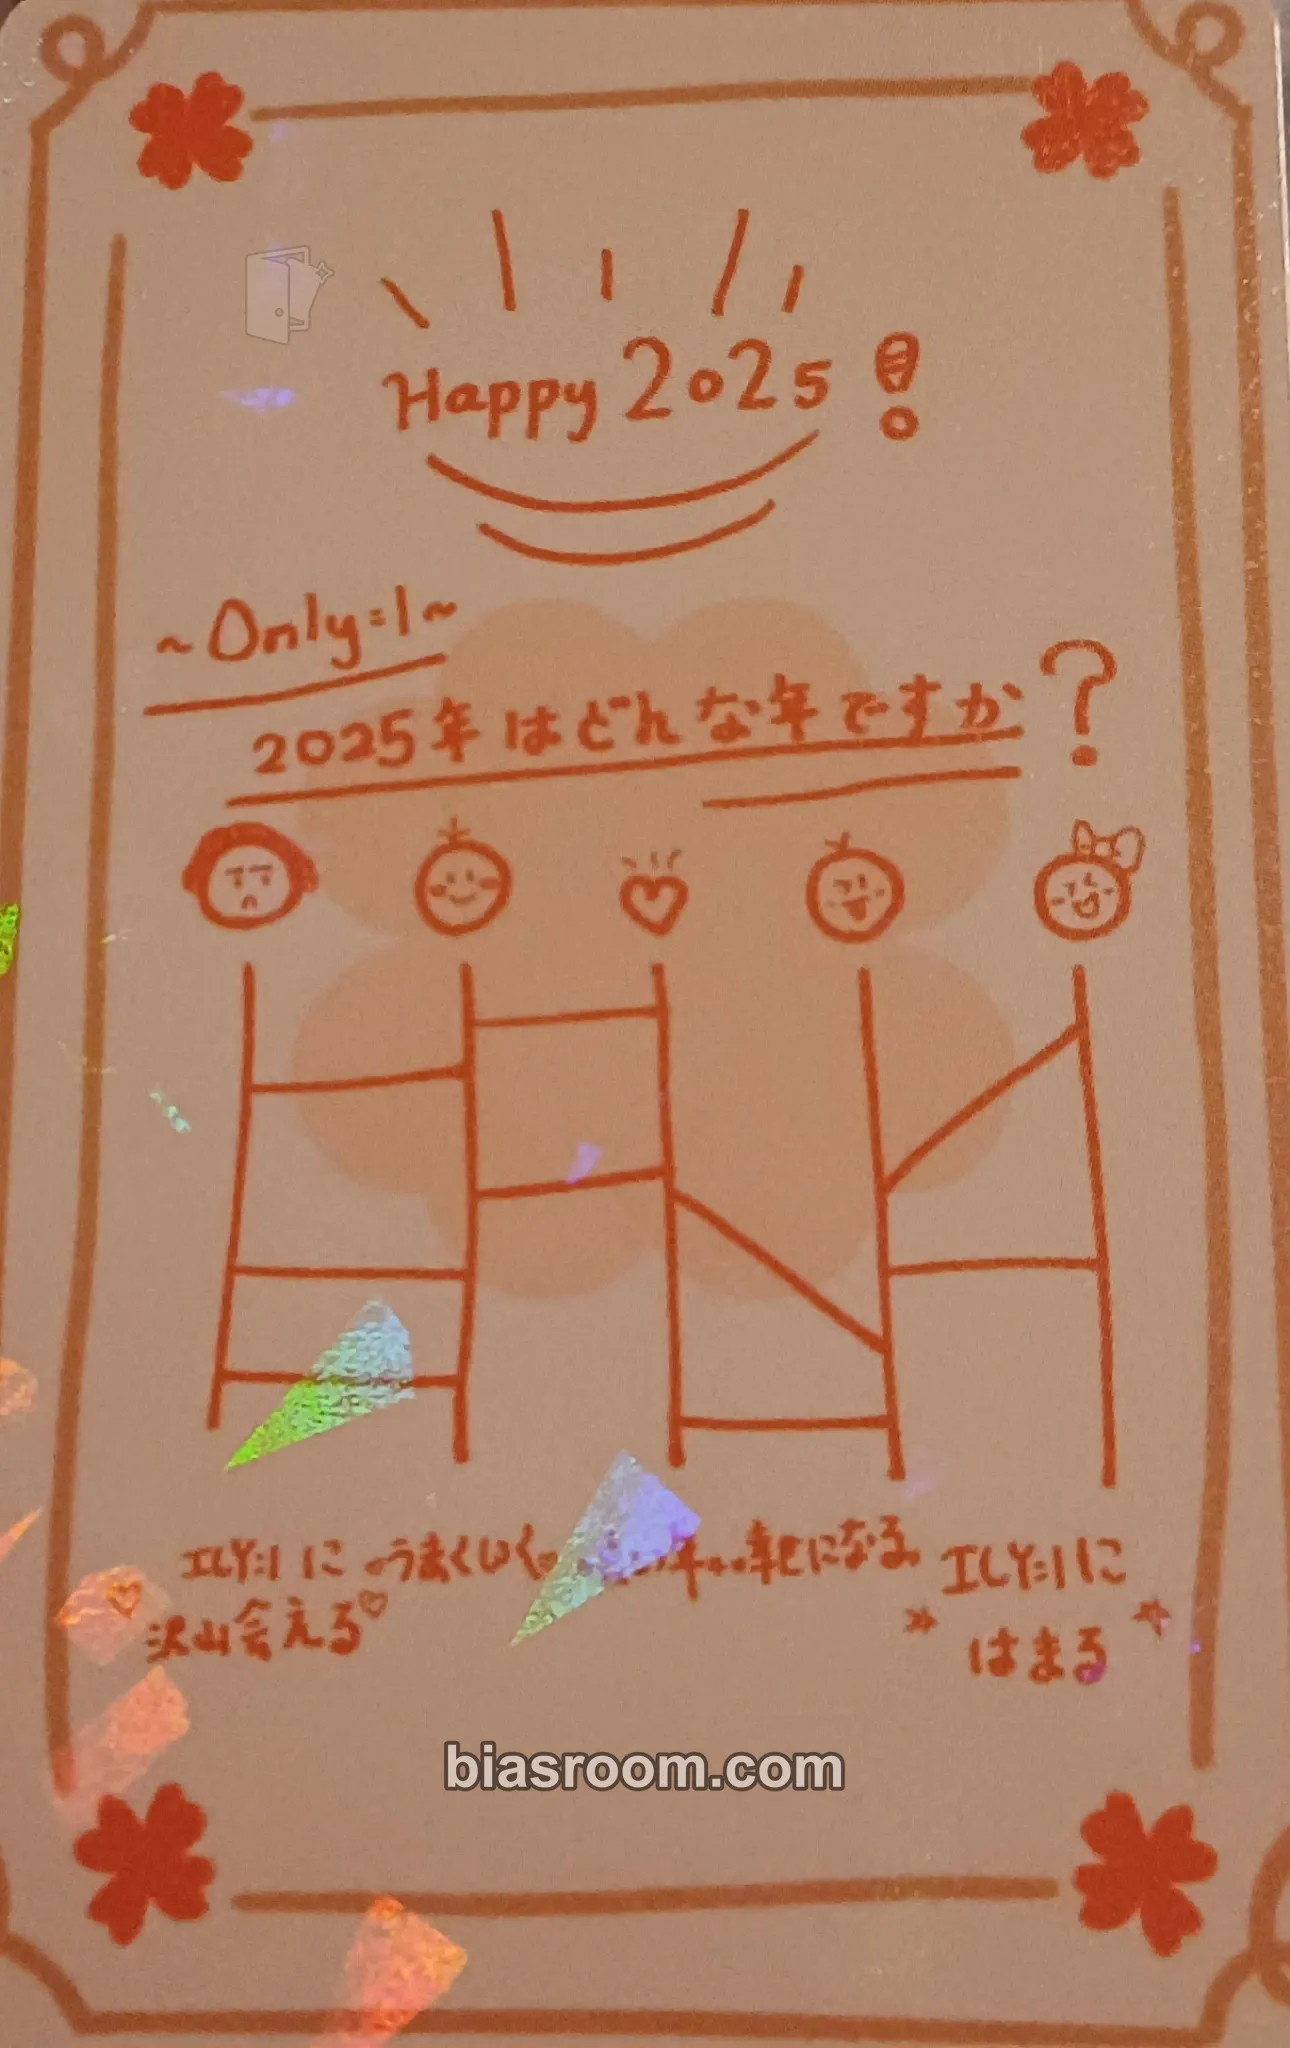 Happy 2025!
~Only=1~
2025年はどんな年ですか?
ILY:1に うまくいく 年 幸せになる ILY:1に
沢山会える♡ はまる
biasroom.com